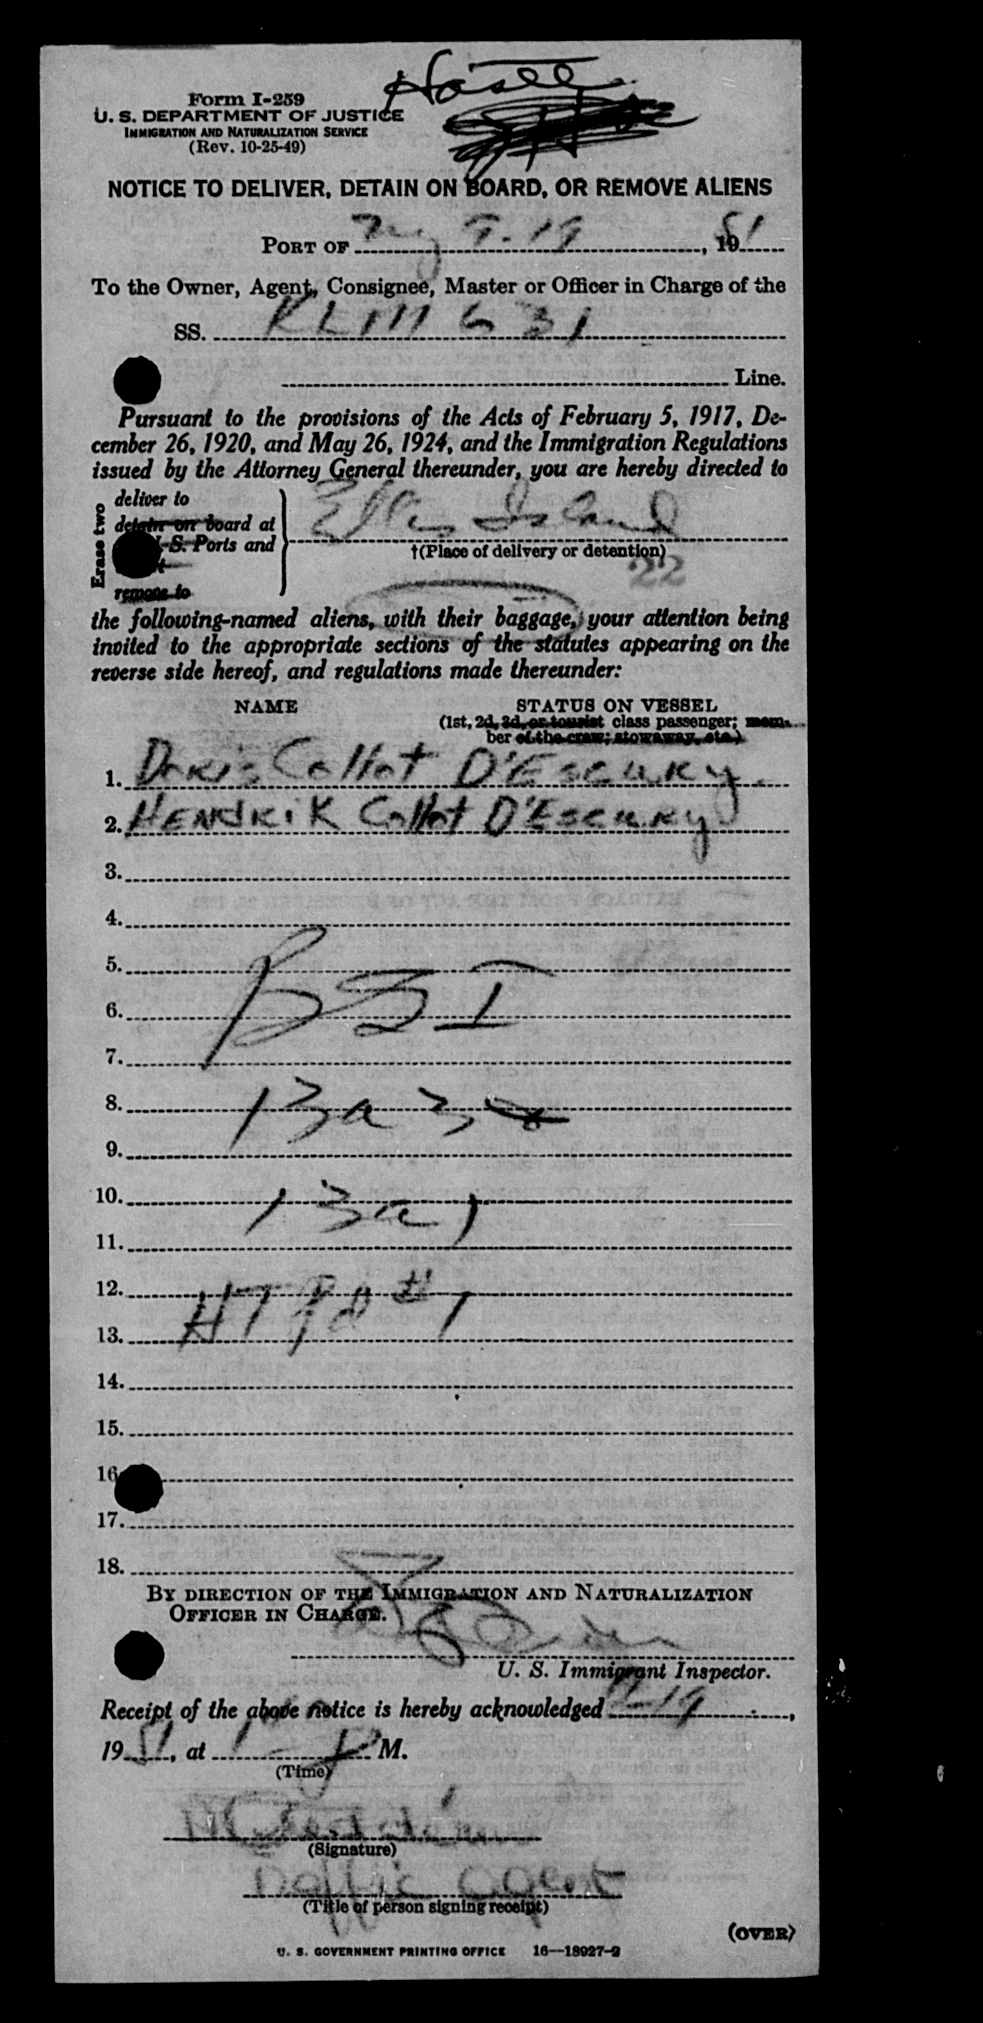 Form I-259
U. S. DEPARTMENT OF JUSTICE
IMMIGRATION AND NATURALIZATION SERVICE
(Rev. 10-25-49)
NOTICE TO DELIVER, DETAIN ON BOARD, OR REMOVE ALIENS
PORT OF N.Y. 9-19, 1951
To the Owner, Agent, Consignee, Master or Officer in Charge of the
SS. KLM 631
Line.
Pursuant to the provisions of the Acts of February 5, 1917, De-
cember 26, 1920, and May 26, 1924, and the Immigration Regulations
issued by the Attorney General thereunder, you are hereby directed to
Erase two
deliver to
detain on board at
U.S. Ports and
remove to
Ellis Island
†(Place of delivery or detention)
22
the following-named aliens, with their baggage, your attention being
invited to the appropriate sections of the statutes appearing on the
reverse side hereof, and regulations made thereunder:
NAME STATUS ON VESSEL
(1st, 2d, 3d, or tourist class passenger; mem-
ber of the crew; stowaway, etc.)
1. Doris Collot D'Escury
2. HENdRiK Collot D'Escury
3.
4.
5.
6. BSI
7.
8. 13a3
9.
10. 13a1
11.
12. HT Pd #1
13.
14.
15.
16.
17.
18.
BY DIRECTION OF THE IMMIGRATION AND NATURALIZATION
OFFICER IN CHARGE.
U. S. Immigrant Inspector.
Receipt of the above notice is hereby acknowledged 9-19,
1951, at 1 - P M.
(Time)
(Signature)
Traffic agent
(Title of person signing receipt)
(OVER)
U. S. GOVERNMENT PRINTING OFFICE 16—18927-2